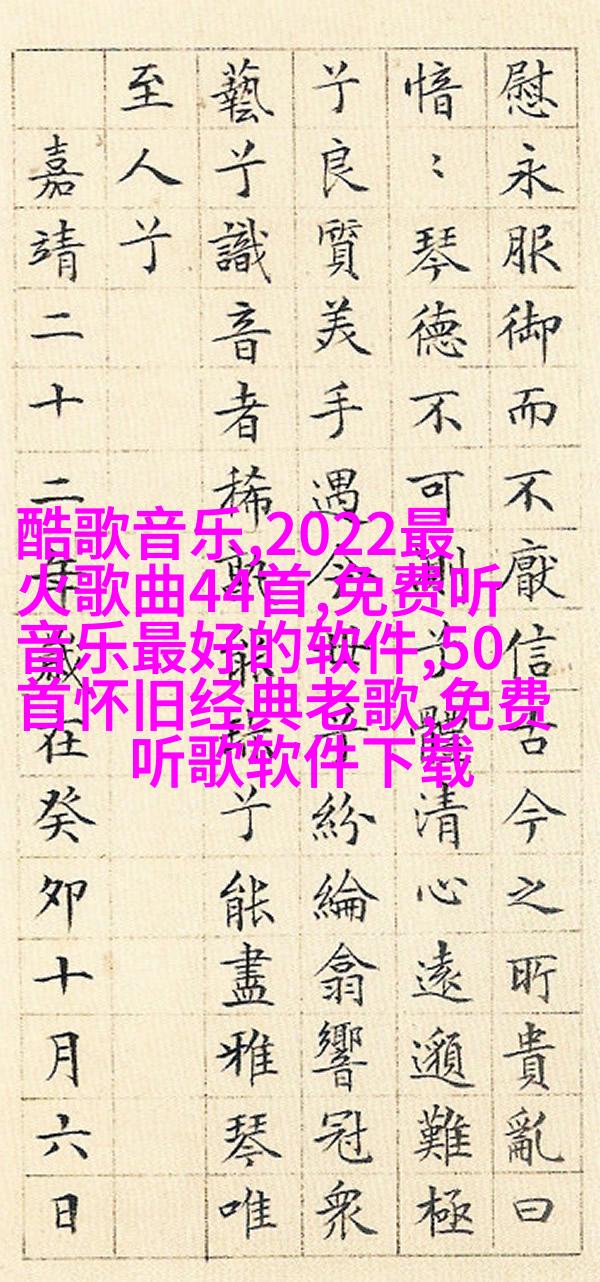 慰永服御而不厭信古今之所貴亂曰
愔〻琴德不可測兮體清心遠邈難極
兮良質美手遇今世兮紛綸翕響冠衆
藝兮識音者稀孰能珍兮能盡雅琴唯
至人兮
嘉靖二十二年歲在癸卯十月六日
酷歌音乐,2022最
火歌曲44首,免费听
音乐最好的软件,50
首怀旧经典老歌,免费
听歌软件下载